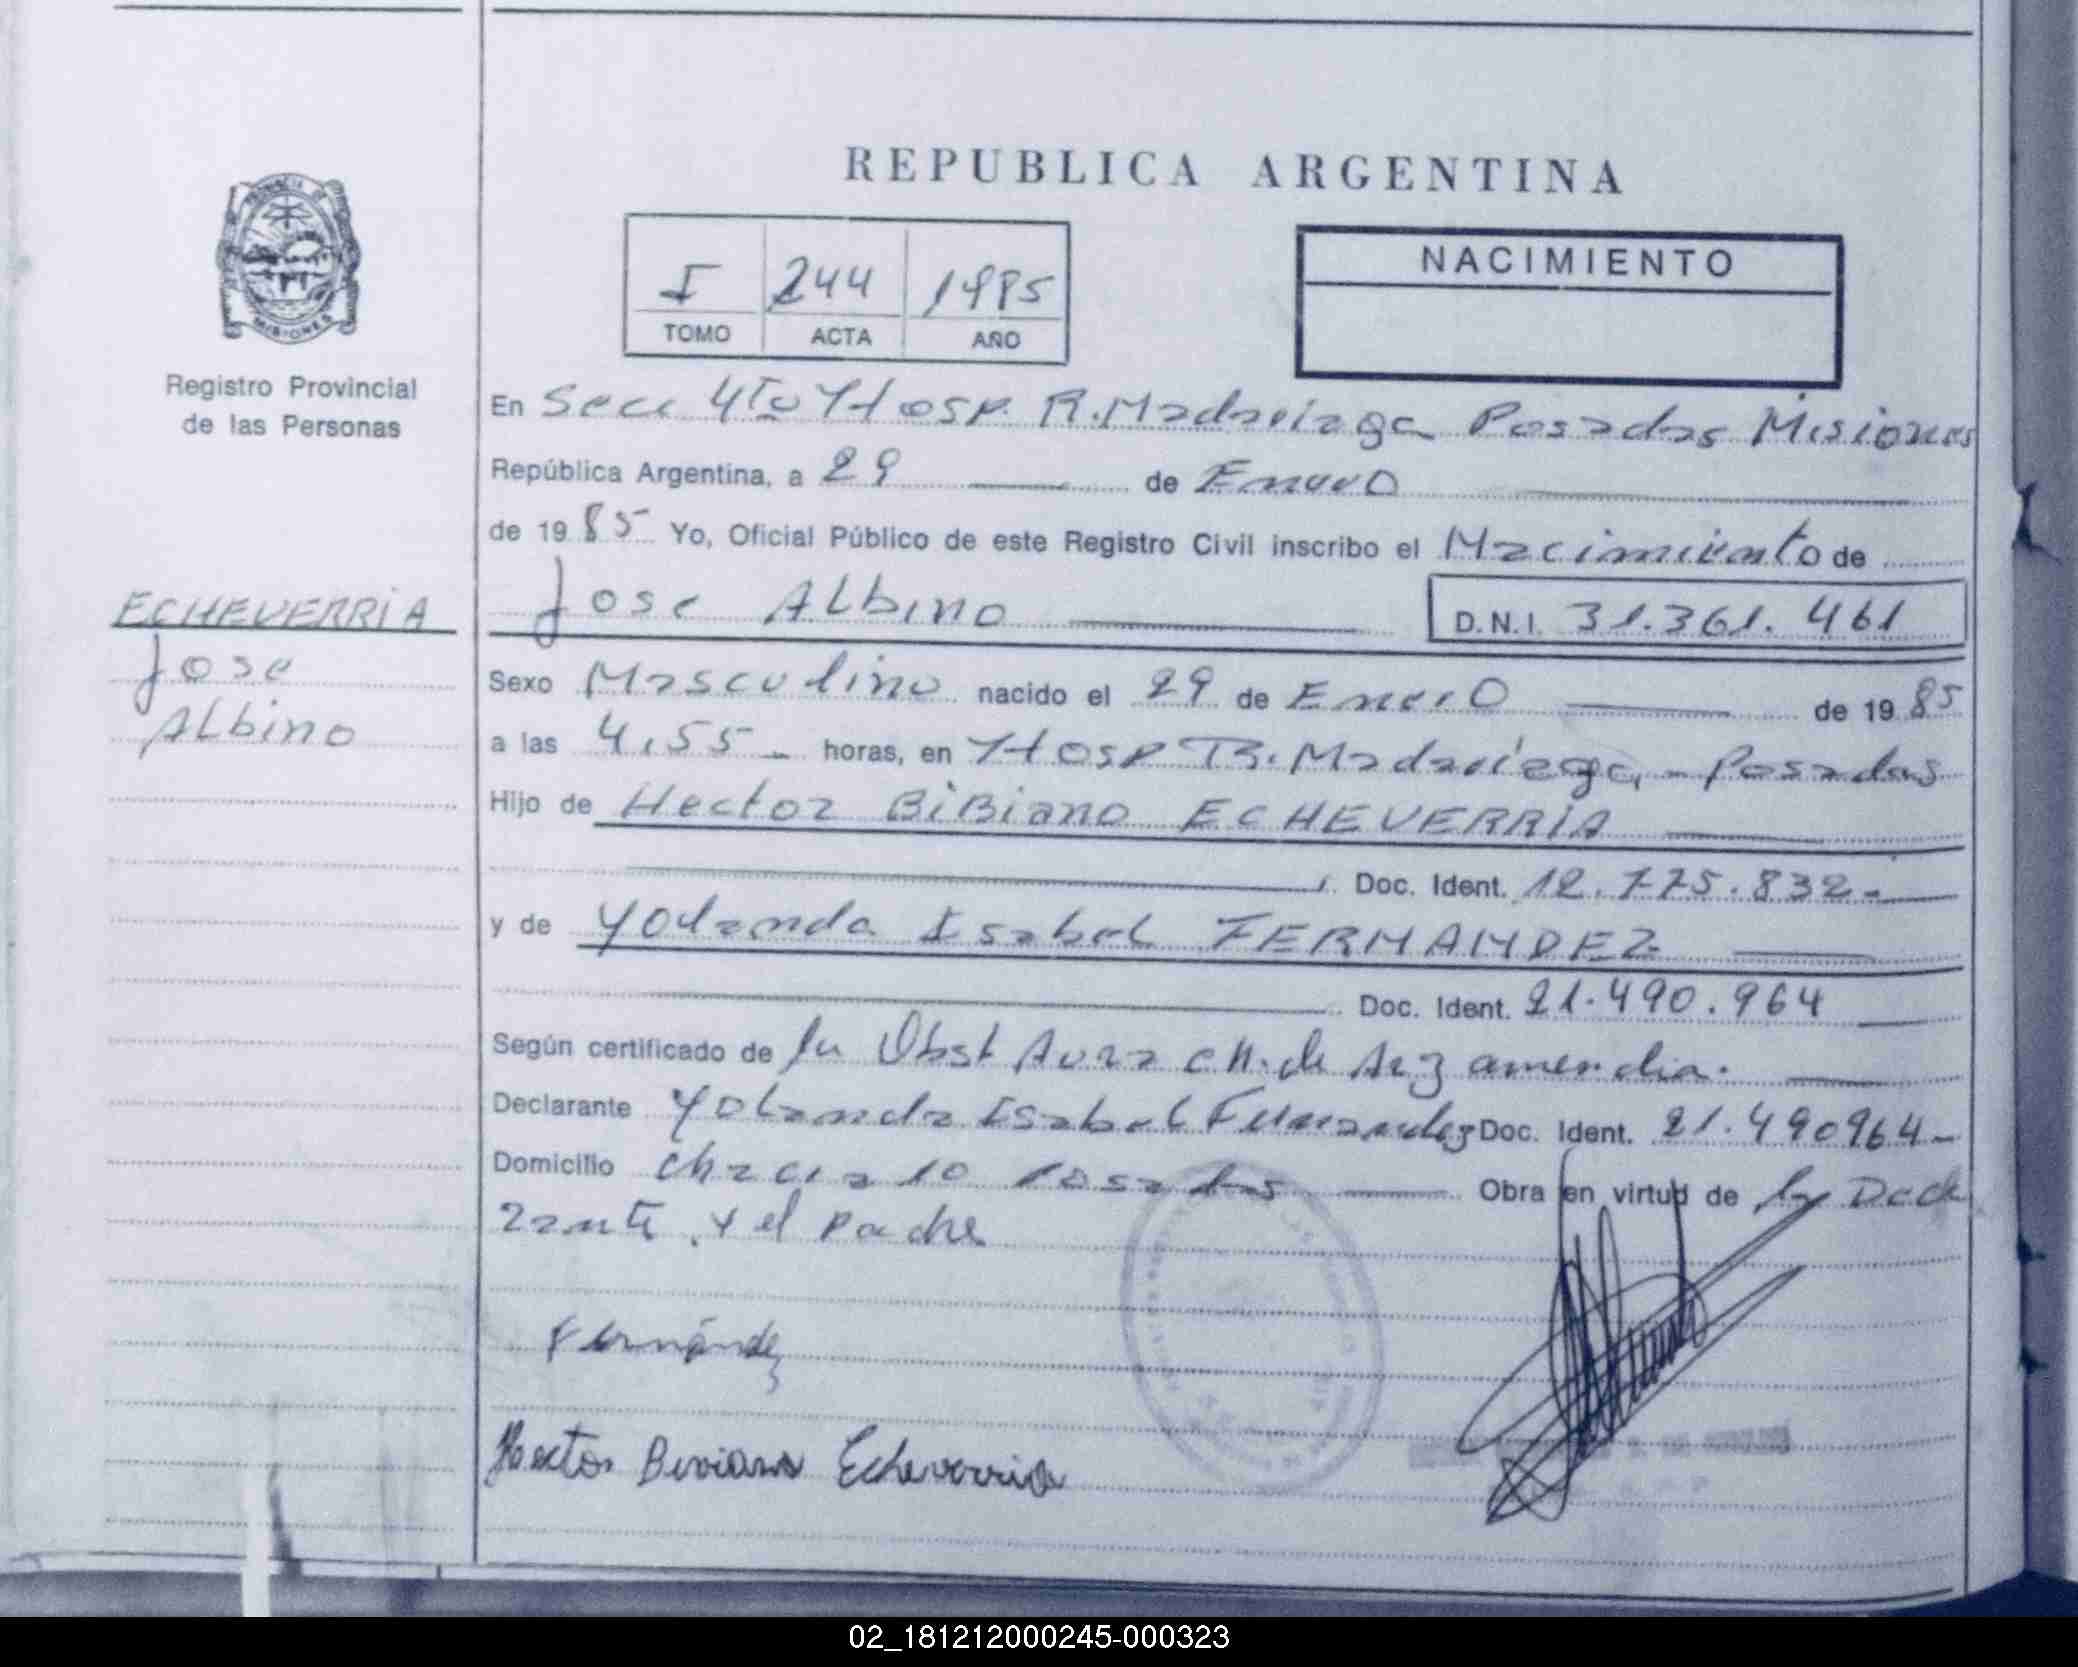 REPUBLICA ARGENTINA
PROVINCIA DE
MISIONES
Registro Provincial
de las Personas
I 244 1985
TOMO ACTA AÑO
NACIMIENTO
En Secc 4ta Hosp. R. Madariaga Posadas Misiones
República Argentina, a 29 de Enero
de 1985 Yo, Oficial Público de este Registro Civil inscribo el Nacimiento de
ECHEVERRIA
Jose
Albino
Jose Albino D.N.I. 31.361.461
Sexo Masculino nacido el 29 de Enero de 1985
a las 4,55 horas, en Hosp R. Madariaga - Posadas
Hijo de Hector BiBiano ECHEVERRIA
Doc. Ident. 12.775.832.-
y de Yolanda Isabel FERNANDEZ
Doc. Ident. 21.490.964
Según certificado de la Obst Aura CH. de Arzamendia.
Declarante Yolanda Isabel Fernandez Doc. Ident. 21.490964-
Domicilio Chacra 10 Posadas Obra en virtud de la Decla
rante y el Padre
Fernández
Hector Biviano Echeverria
02_181212000245-000323